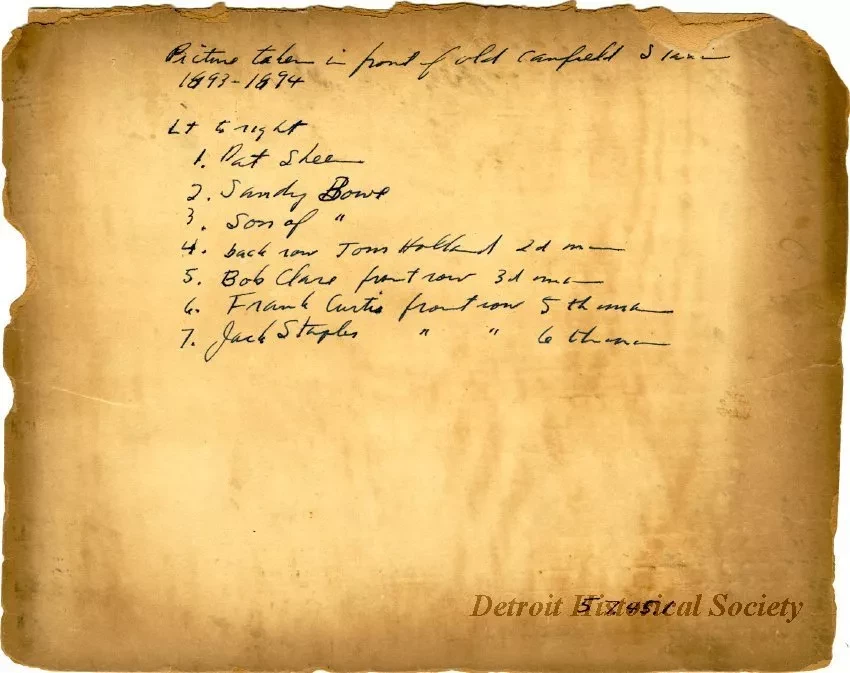 Picture taken in front of old Canfield
1893-1894
Lt to right
1. Pat Shee
2. Sandy Bowe
3. Son of "
4. back row Tom Holland 2d man
5. Bob Clare front row 3d man
6. Frank Curtis front row 5th man
7. Jack Staples " " 6th man
Detroit Historical Society